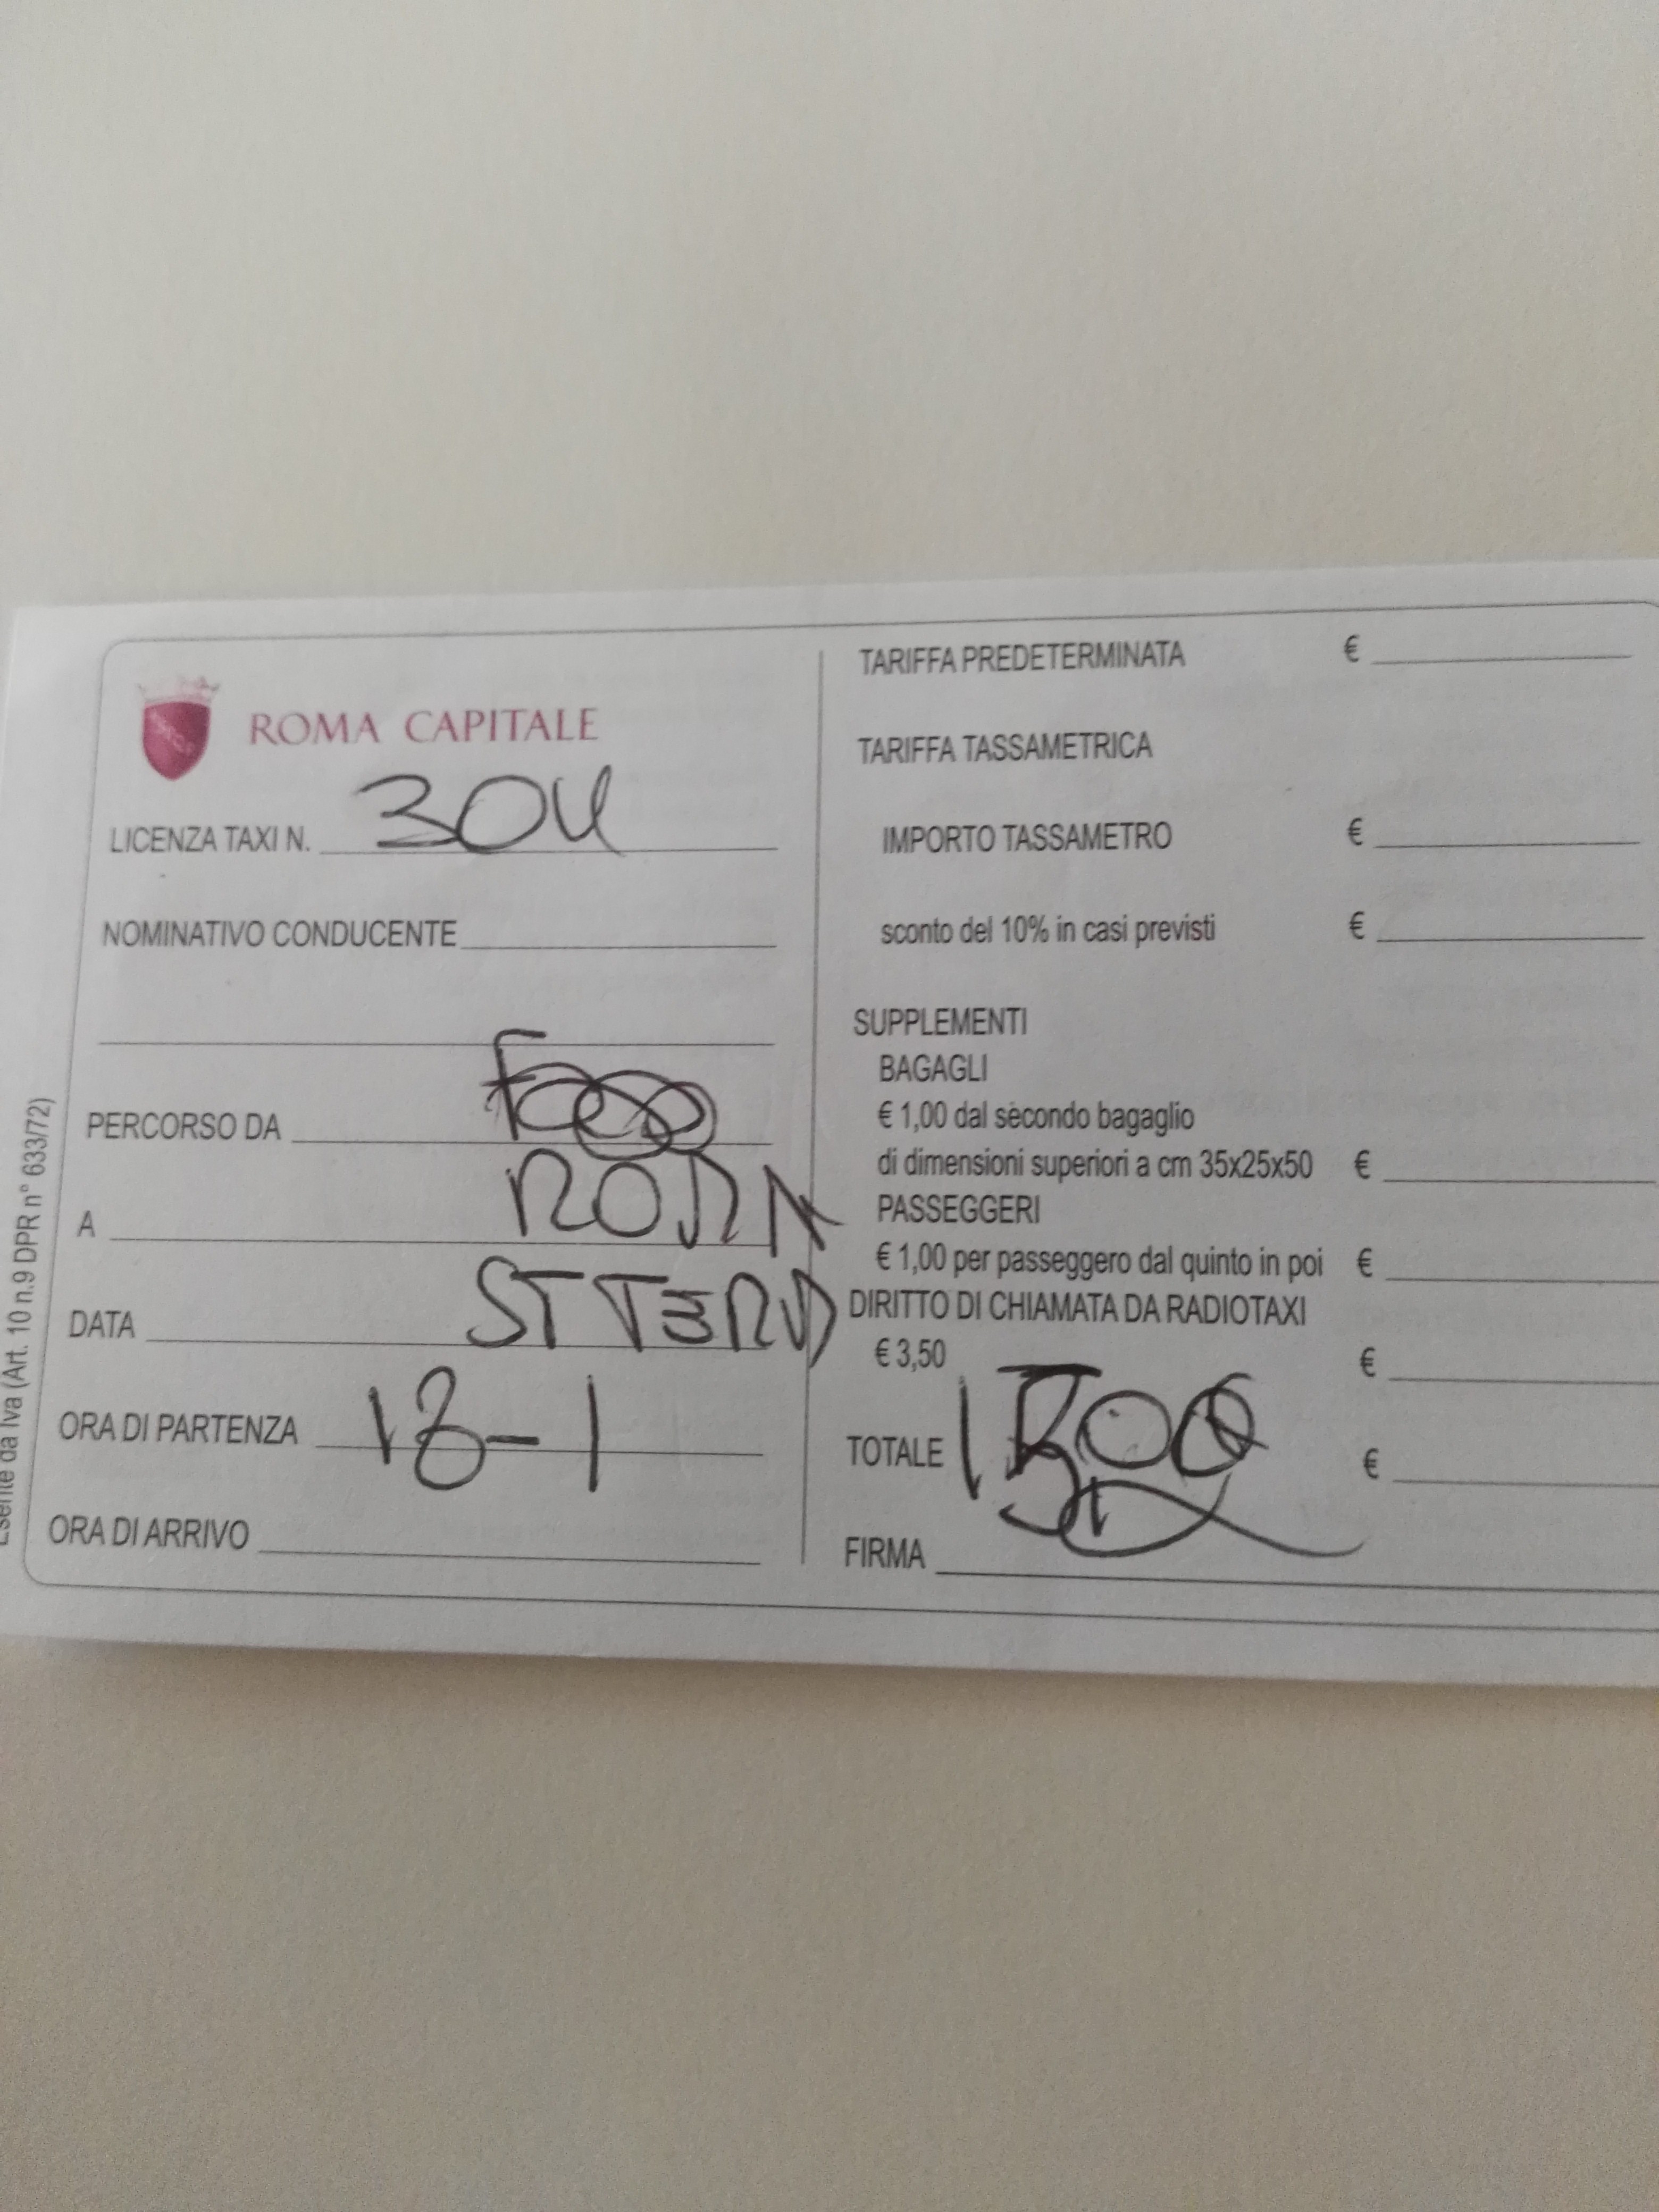 ROMA CAPITALE
LICENZA TAXI N. 304
NOMINATIVO CONDUCENTE
PERCORSO DA
A ROMA
DATA
ORA DI PARTENZA 18-1
ORA DI ARRIVO
Esente da Iva (Art. 10 n.9 DPR n° 633/72)
TARIFFA PREDETERMINATA €
TARIFFA TASSAMETRICA
IMPORTO TASSAMETRO €
sconto del 10% in casi previsti €
SUPPLEMENTI
BAGAGLI
€ 1,00 dal secondo bagaglio
di dimensioni superiori a cm 35x25x50 €
PASSEGGERI
€ 1,00 per passeggero dal quinto in poi €
DIRITTO DI CHIAMATA DA RADIOTAXI
€ 3,50 €
TOTALE €
FIRMA